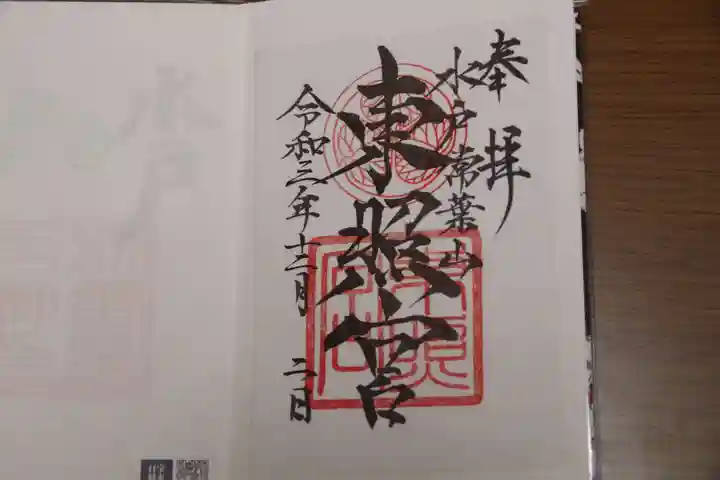 奉拝
水戸常葉山
東照宮
令和三年十二月二日